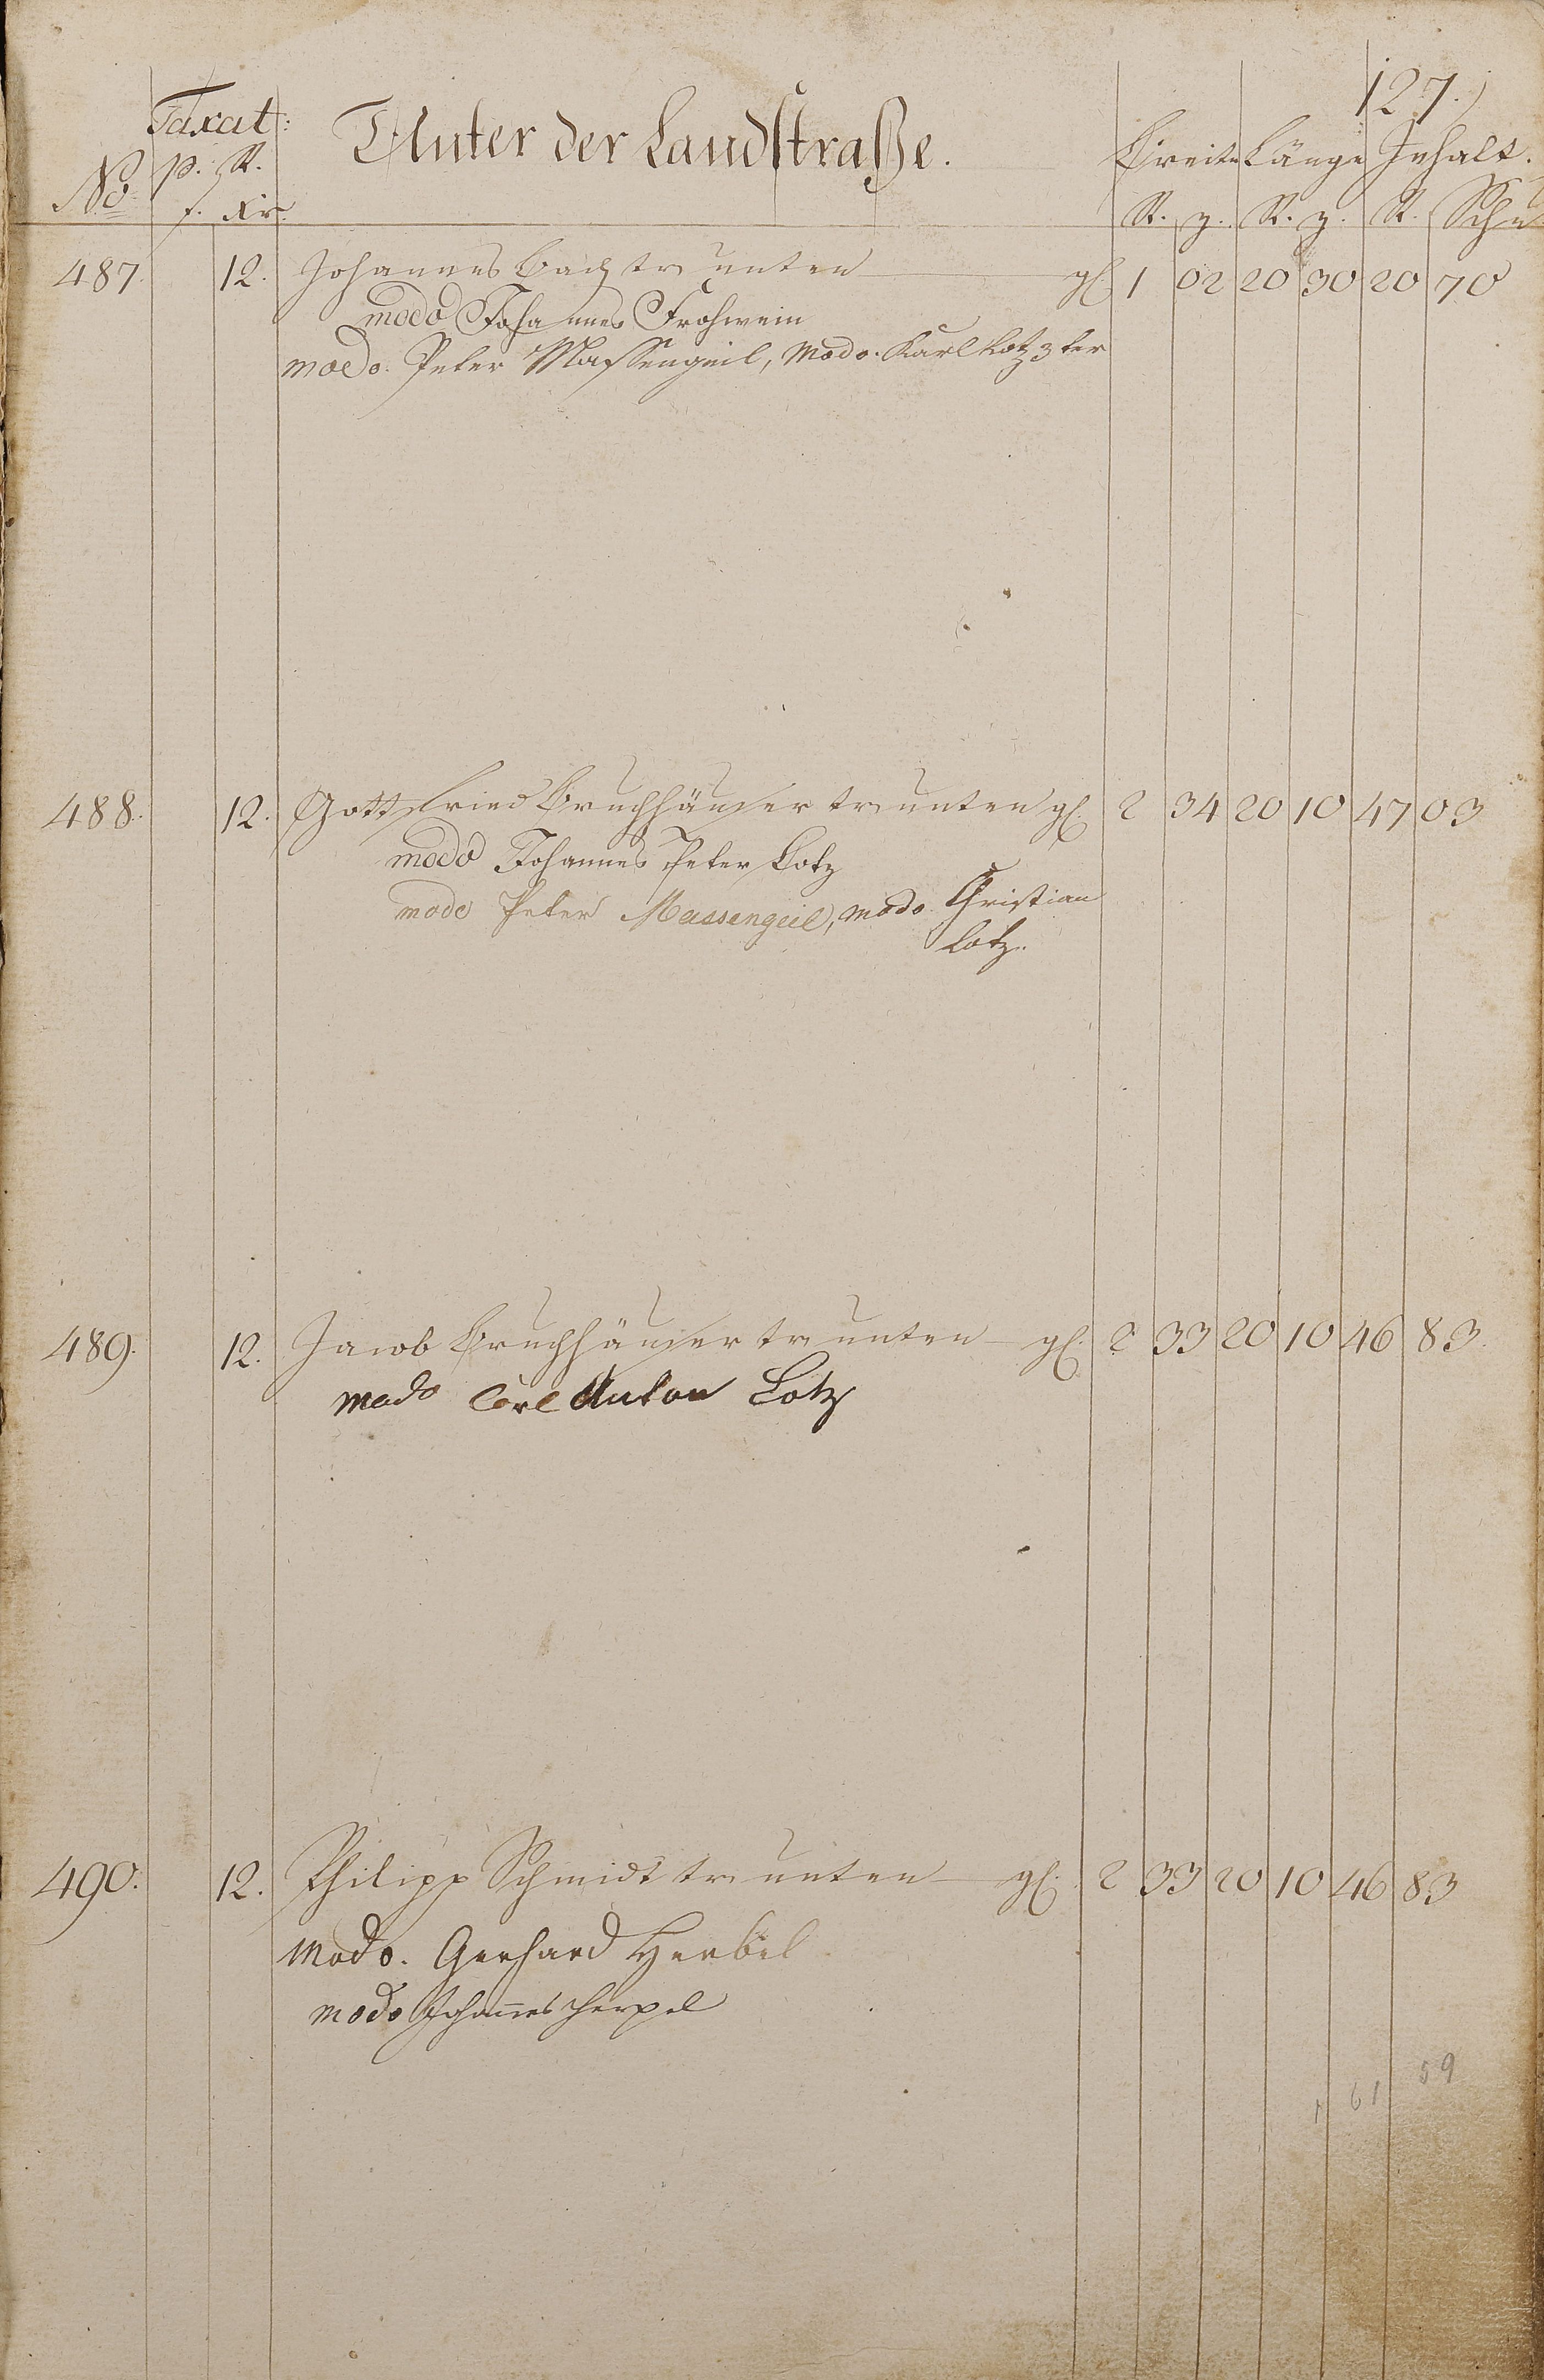 127.)
Taxat:
Unter der Landstraße.
No p. R. Breite Länge Inhalt.
f. Xr. R. z. R. z. R. Schu
487. 12. Johannes Bach tr unten gl. 1 02 20 30 20 70
modo Johannes Frohwein
modo. Peter Massengeil, modo. Karl Lotz 3ter
488. 12. Gottfried Bruchhäuser tr unten gl. 2 34 20 10 47 03
modo Johannes Peter Lotz
modo Peter Massengeil, modo Christian
Lotz.
489. 12. Jacob Bruchhäuser tr unten gl. 2 33 20 10 46 83.
modo Carl Anton Lotz
490. 12. Philipp Schmidt tr unten gl. 2 33 20 10 46 83
Modo. Gerhard Herbel
modo Johannes Herpel
1 61 59